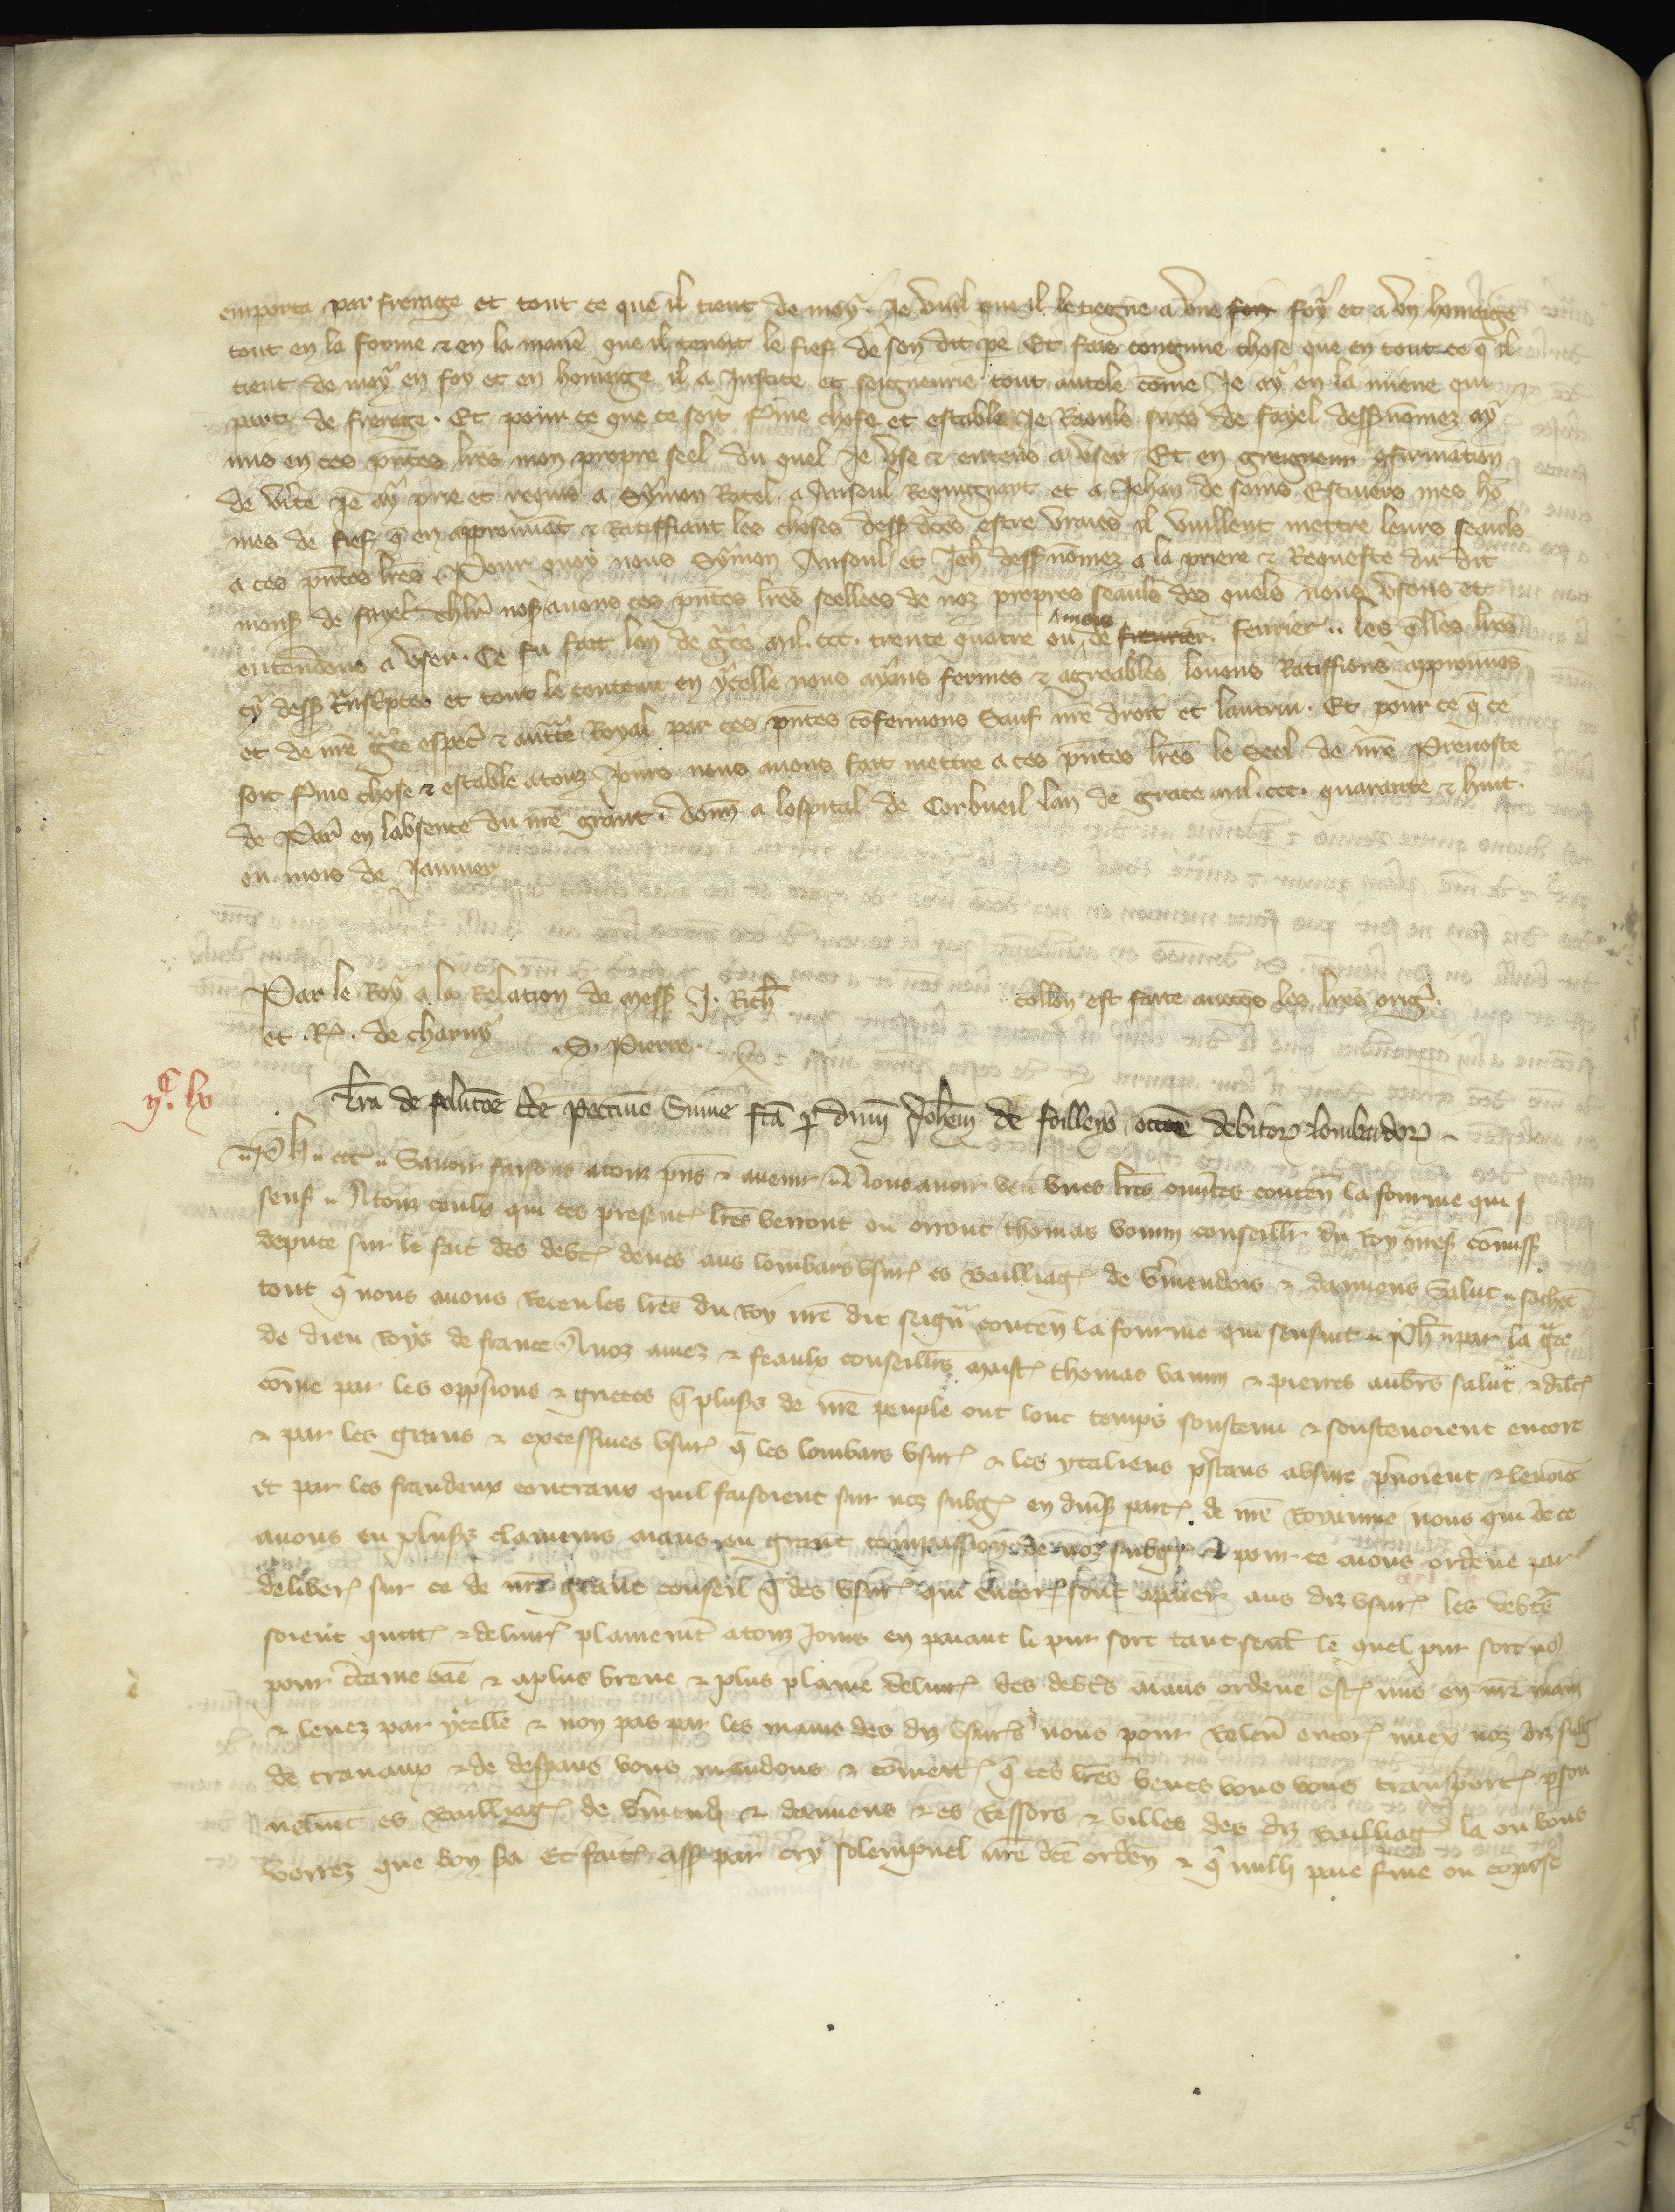 emporta par frerage et tout ce que il tient de moy. Je vuil que il le tiegne a une foy foy et a un homaige
tout en la forme & en la manie que il tenoit le fief de son dit pe Et fais congnue chose que en tout ce q̄ il
tient de moy en foy et en homaige il a Justice et seigneurie tout autele cōme Je ay en la miene qui
part de frerage. Et pour ce que ce soit fme chose et estable Je Raouls sires de fayel dess nōmez ay
mis en ces pn̄tes lr̄es mon propre seel du quel Je use & entens a user. Et en greigneur 9firmation
de v̄ite Je ay prie et requis a Symon Ratel a Ansoul Requignart et a Jehan de sains Escuiers mes hō
mes de fief q̄ en approuvāt & Ratiffiant les choses dess d̄ces estre vraies il vuillent mettre leurs seauls
a ces pn̄tes lr̄es. Pour quoy nous Symon Ansoul et Jeh̄ dess nōmez a la priere & Requeste du dit
mons de fayel chlr̄ nos avons ces pn̄tes lr̄es seellees de noz propres seauls des quels nous usons et
entendons a user. Ce fu fait lan de gr̄ce mil. ccc. trente quatre ou mois de fevrier. fevrier.. les q̄lles lr̄es
cy dess tn̄scriptes et tout le contenu en ycelle nous ayans fermes & agreables louons Ratiffions approuvōs
et de nr̄e gr̄ce especl̄ & auct̄te Royal par ces pn̄tes cōfermons Sauf nr̄e droit et lautrui. Et pour ce q̄ ce
soit fme chose & estable a touz Jours nous avons fait mettre a ces pn̄tes lr̄es le Seel de nr̄e Prevoste
de Par̄ en labsence du nr̄e grant. Donn̄ a lospital de Corbueil lan de grace mil. ccc. quarante & huit.
ou mois de Janvier
Par le Roy a la Relation de mess J. Rich̄
collōn est faite avecqs les lr̄es oriḡ.
et R. de charny
.S. Pierre.
lx
iiij. lv
Lr̄a de solucōe de pecunie Sume fcā p dnm̄ Joh̄em de foilleys occōe debitor lombardor
Ph̄.. etc̄.. Savoir faisons a touz pn̄s & avenir Nous avoir veu unes lr̄es ouv̄tes conten̄ la fourme qui s
ensuit.. A touz ceulx qui ces present lr̄es verront ou orront thomas vanin conseillr̄ du Roy nr̄es cōmiss
depute sur le fait des debt deues aus lombars usur es bailliag de v̄mendois & damiens Salut.. sachēt
tout q̄ nous avons Receu les lr̄es du Roy nr̄e dit seign̄r conten̄ la fourme qui sensuit.. Ph̄.. par la gr̄ce
de dieu Roys de france A noz amez & feaulx conseillr̄s maist thomas vanin & pierres aub̄rs salut & dilc̄
cōme par les opp̄sions & griees q̄ pluss de nr̄e peuple ont lonc temps soustenu & soustenoient encore
& par les grans & excessives usur q̄ les lombars usur & les ytaliens p̄stans a usure p̄noient & levoiē
et par les fraudeux contraux quil faisoient sur noz subg en div̄s part de nr̄e Royaume nous qui de ce
avons eu pluss clameurs aians eu grant compassion de noz subg & pour ce aions ordene par
deliber sur ce de nr̄e grant conseil q̄ des usur qui encor sont apaier aus diz usur les debt̄
soient quitt & delivr plainemt̄ a touz Jours en paiant le pur sort tant seult̄ le quel pur sort nō
pour c̄taine cāe & a plus breve & plus plaine delivr des debt̄s aians ordene est mis en nr̄e main
& levez par ycelle & non pas par les mains des diz usur̄s nous pour relev̄ encor miex noz diz subg
de travaux & de despans vous mandons & cōmett q̄ ces lr̄es veues vous vous transport p̄son
nelmt̄ es bailliag de v̄mend & damiens & es Ressors & villes des diz bailliag la ou vous
vorrez que bon sera Et fait ass par cry solempnel nr̄e dc̄e orden̄ & q̄ nulh paie fme ou cop̄se